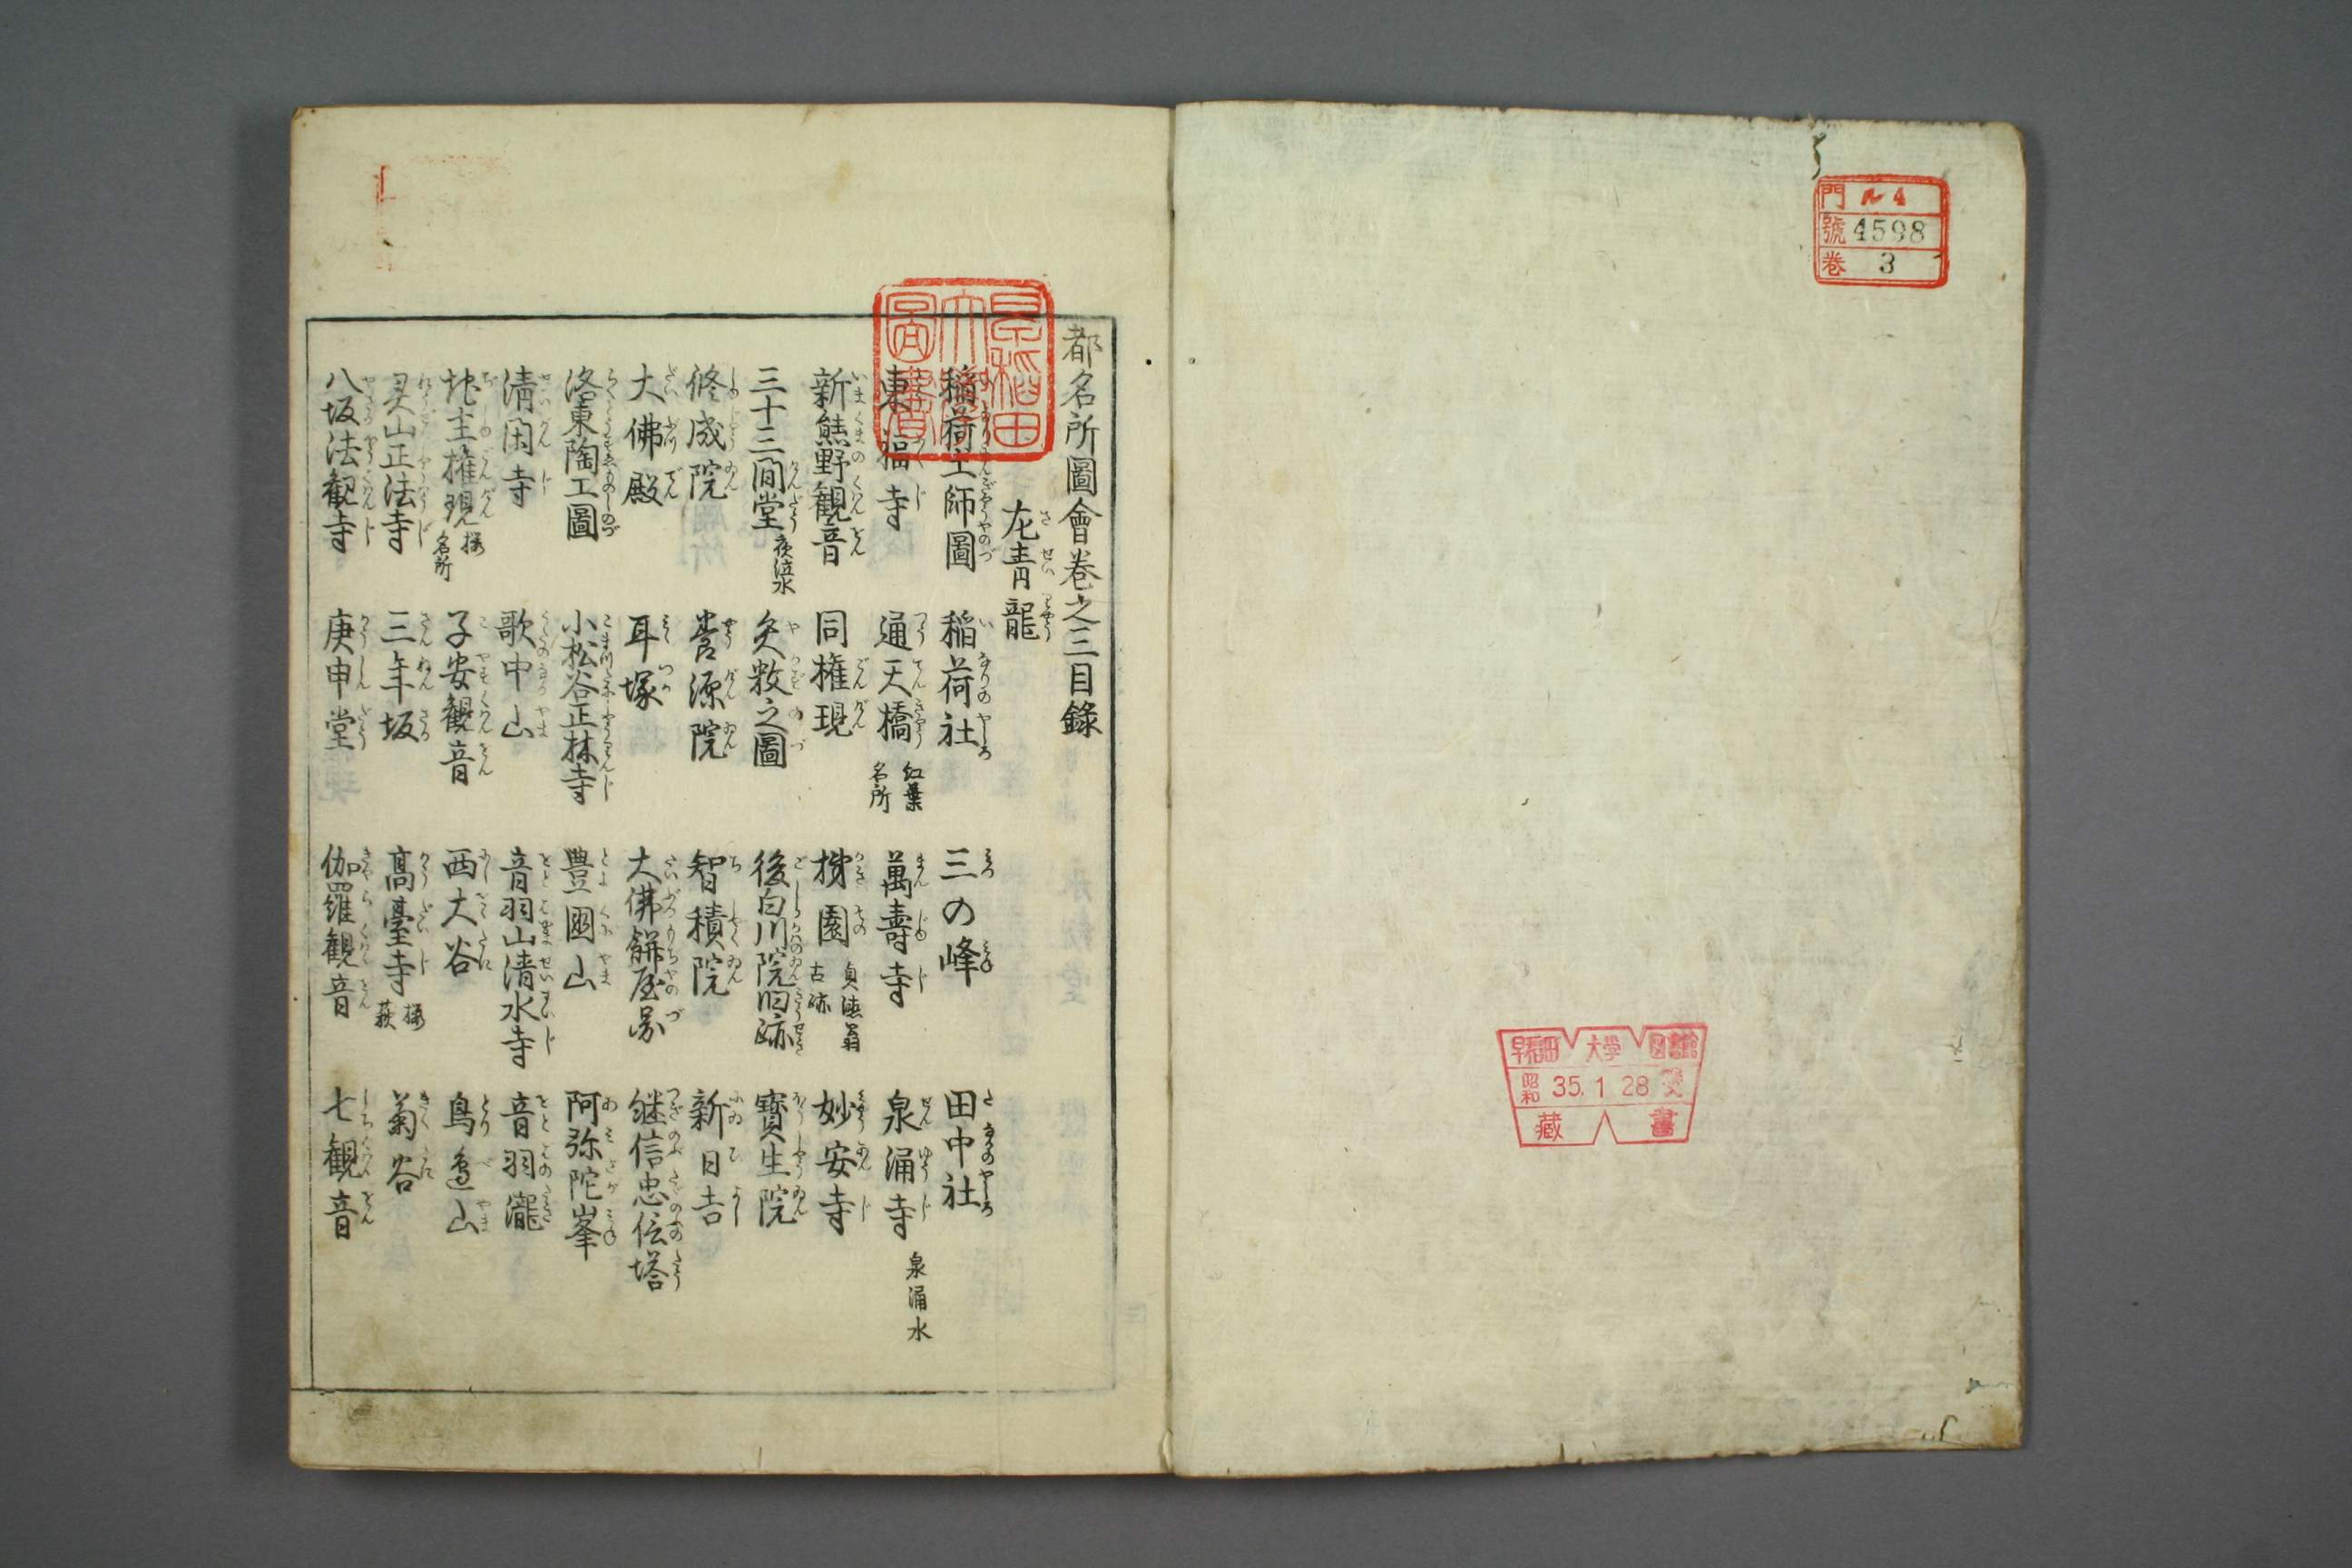 門 ル4
號 4598
卷 3
早稲田大學圖書
昭和 35.1.28 受
藏書
都名所圖會卷之三目錄
左青龍
稲荷土師圖 稲荷社 三の峰 田中社
東福寺 通天橋 紅葉名所 萬壽寺 泉涌寺 泉涌水
新熊野観音 同権現 柿園 貞徳翁古跡 妙安寺
三十三間堂 夜泣水 矢数之圖 後白川院旧跡 寳生院
修成院 養源院 智積院 新日吉
大佛殿 耳塚 大佛餅屋圖 継信忠信塔
洛東陶工圖 小松谷正林寺 豊國山 阿弥陀峯
清閑寺 歌中山 音羽山清水寺 音羽瀧
地主権現 桜名所 子安観音 西大谷 鳥邉山
灵山正法寺 三年坂 髙臺寺 桜萩 菊谷
八坂法観寺 庚申堂 伽羅観音 七観音